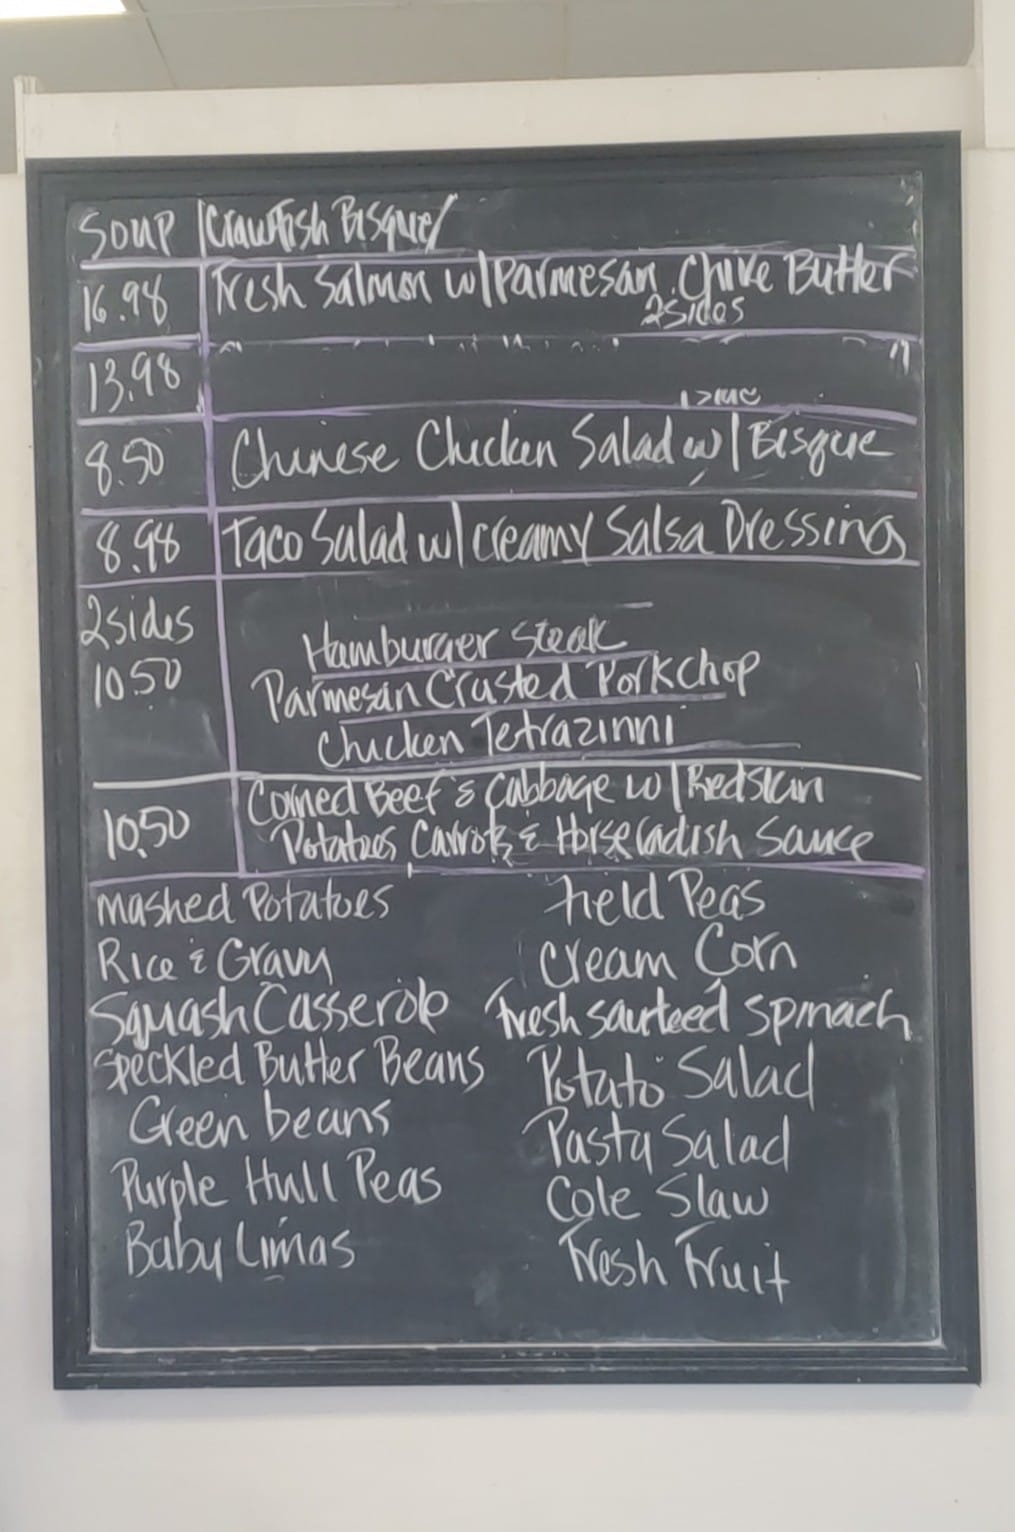 Soup Crawfish Bisque/
16.98 Fresh Salmon w/Parmesan Chive Butter
2sides
13.98 " "
8.50 Chinese Chicken Salad w/Bisque
8.98 Taco Salad w/creamy Salsa Dressing
2sides
10.50
Hamburger Steak
Parmesan Crusted Porkchop
Chicken Tetrazinni
10.50 Corned Beef & Cabbage w/Redskin
Potatoes Carrots & Horseradish Sauce
Mashed Potatoes
Rice & Gravy
Squash Casserole
Speckled Butter Beans
Green beans
Purple Hull Peas
Baby Limas
Field Peas
Cream Corn
Fresh sauteed spinach
Potato Salad
Pasta Salad
Cole Slaw
Fresh Fruit